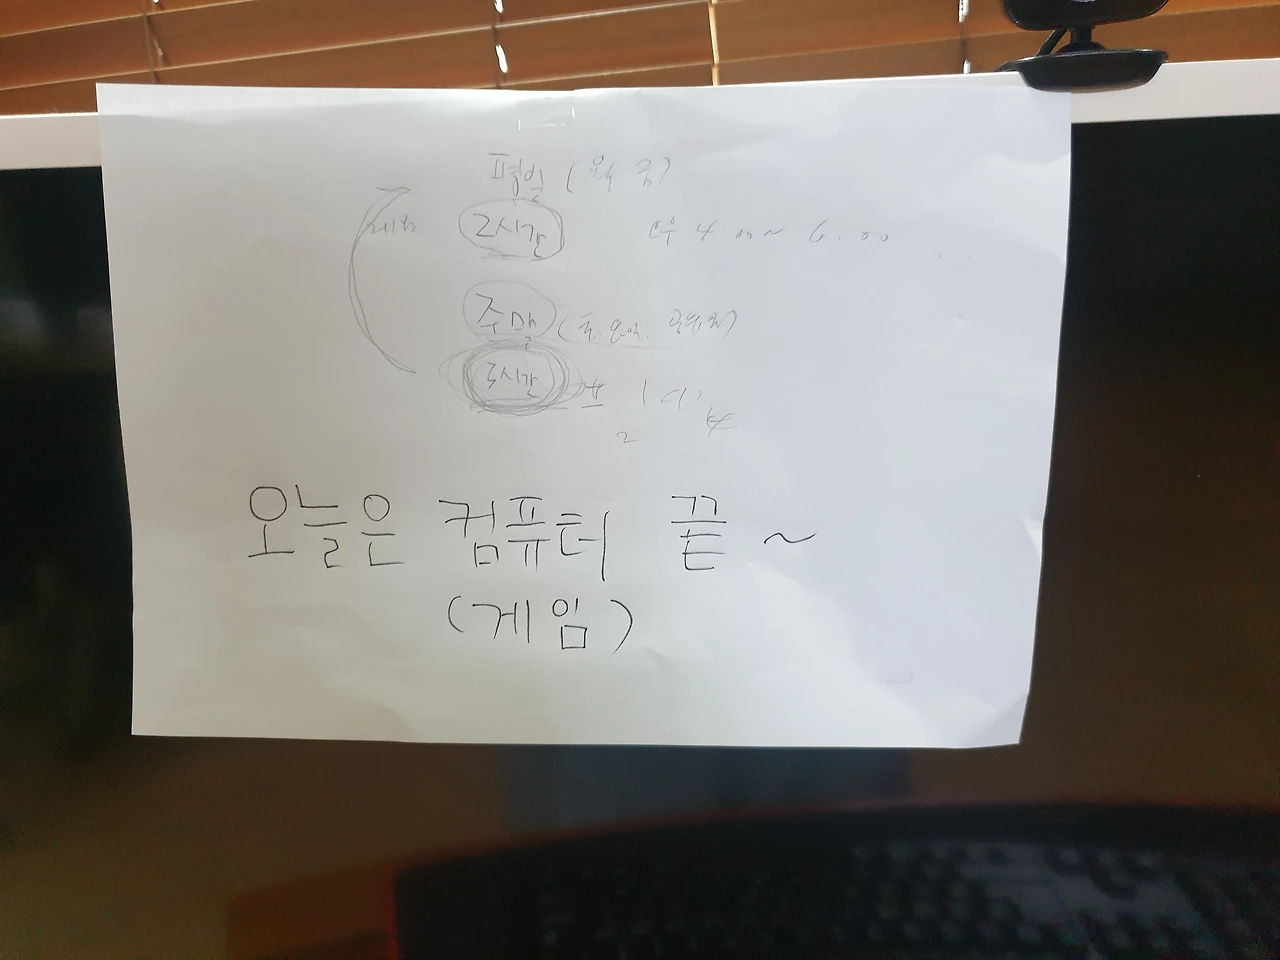 평일 (월~금)
2시간 오후 4:00~6:00
주말 (토.일요일. 공휴일)
3시간
2
오늘은 컴퓨터 끝~
(게임)